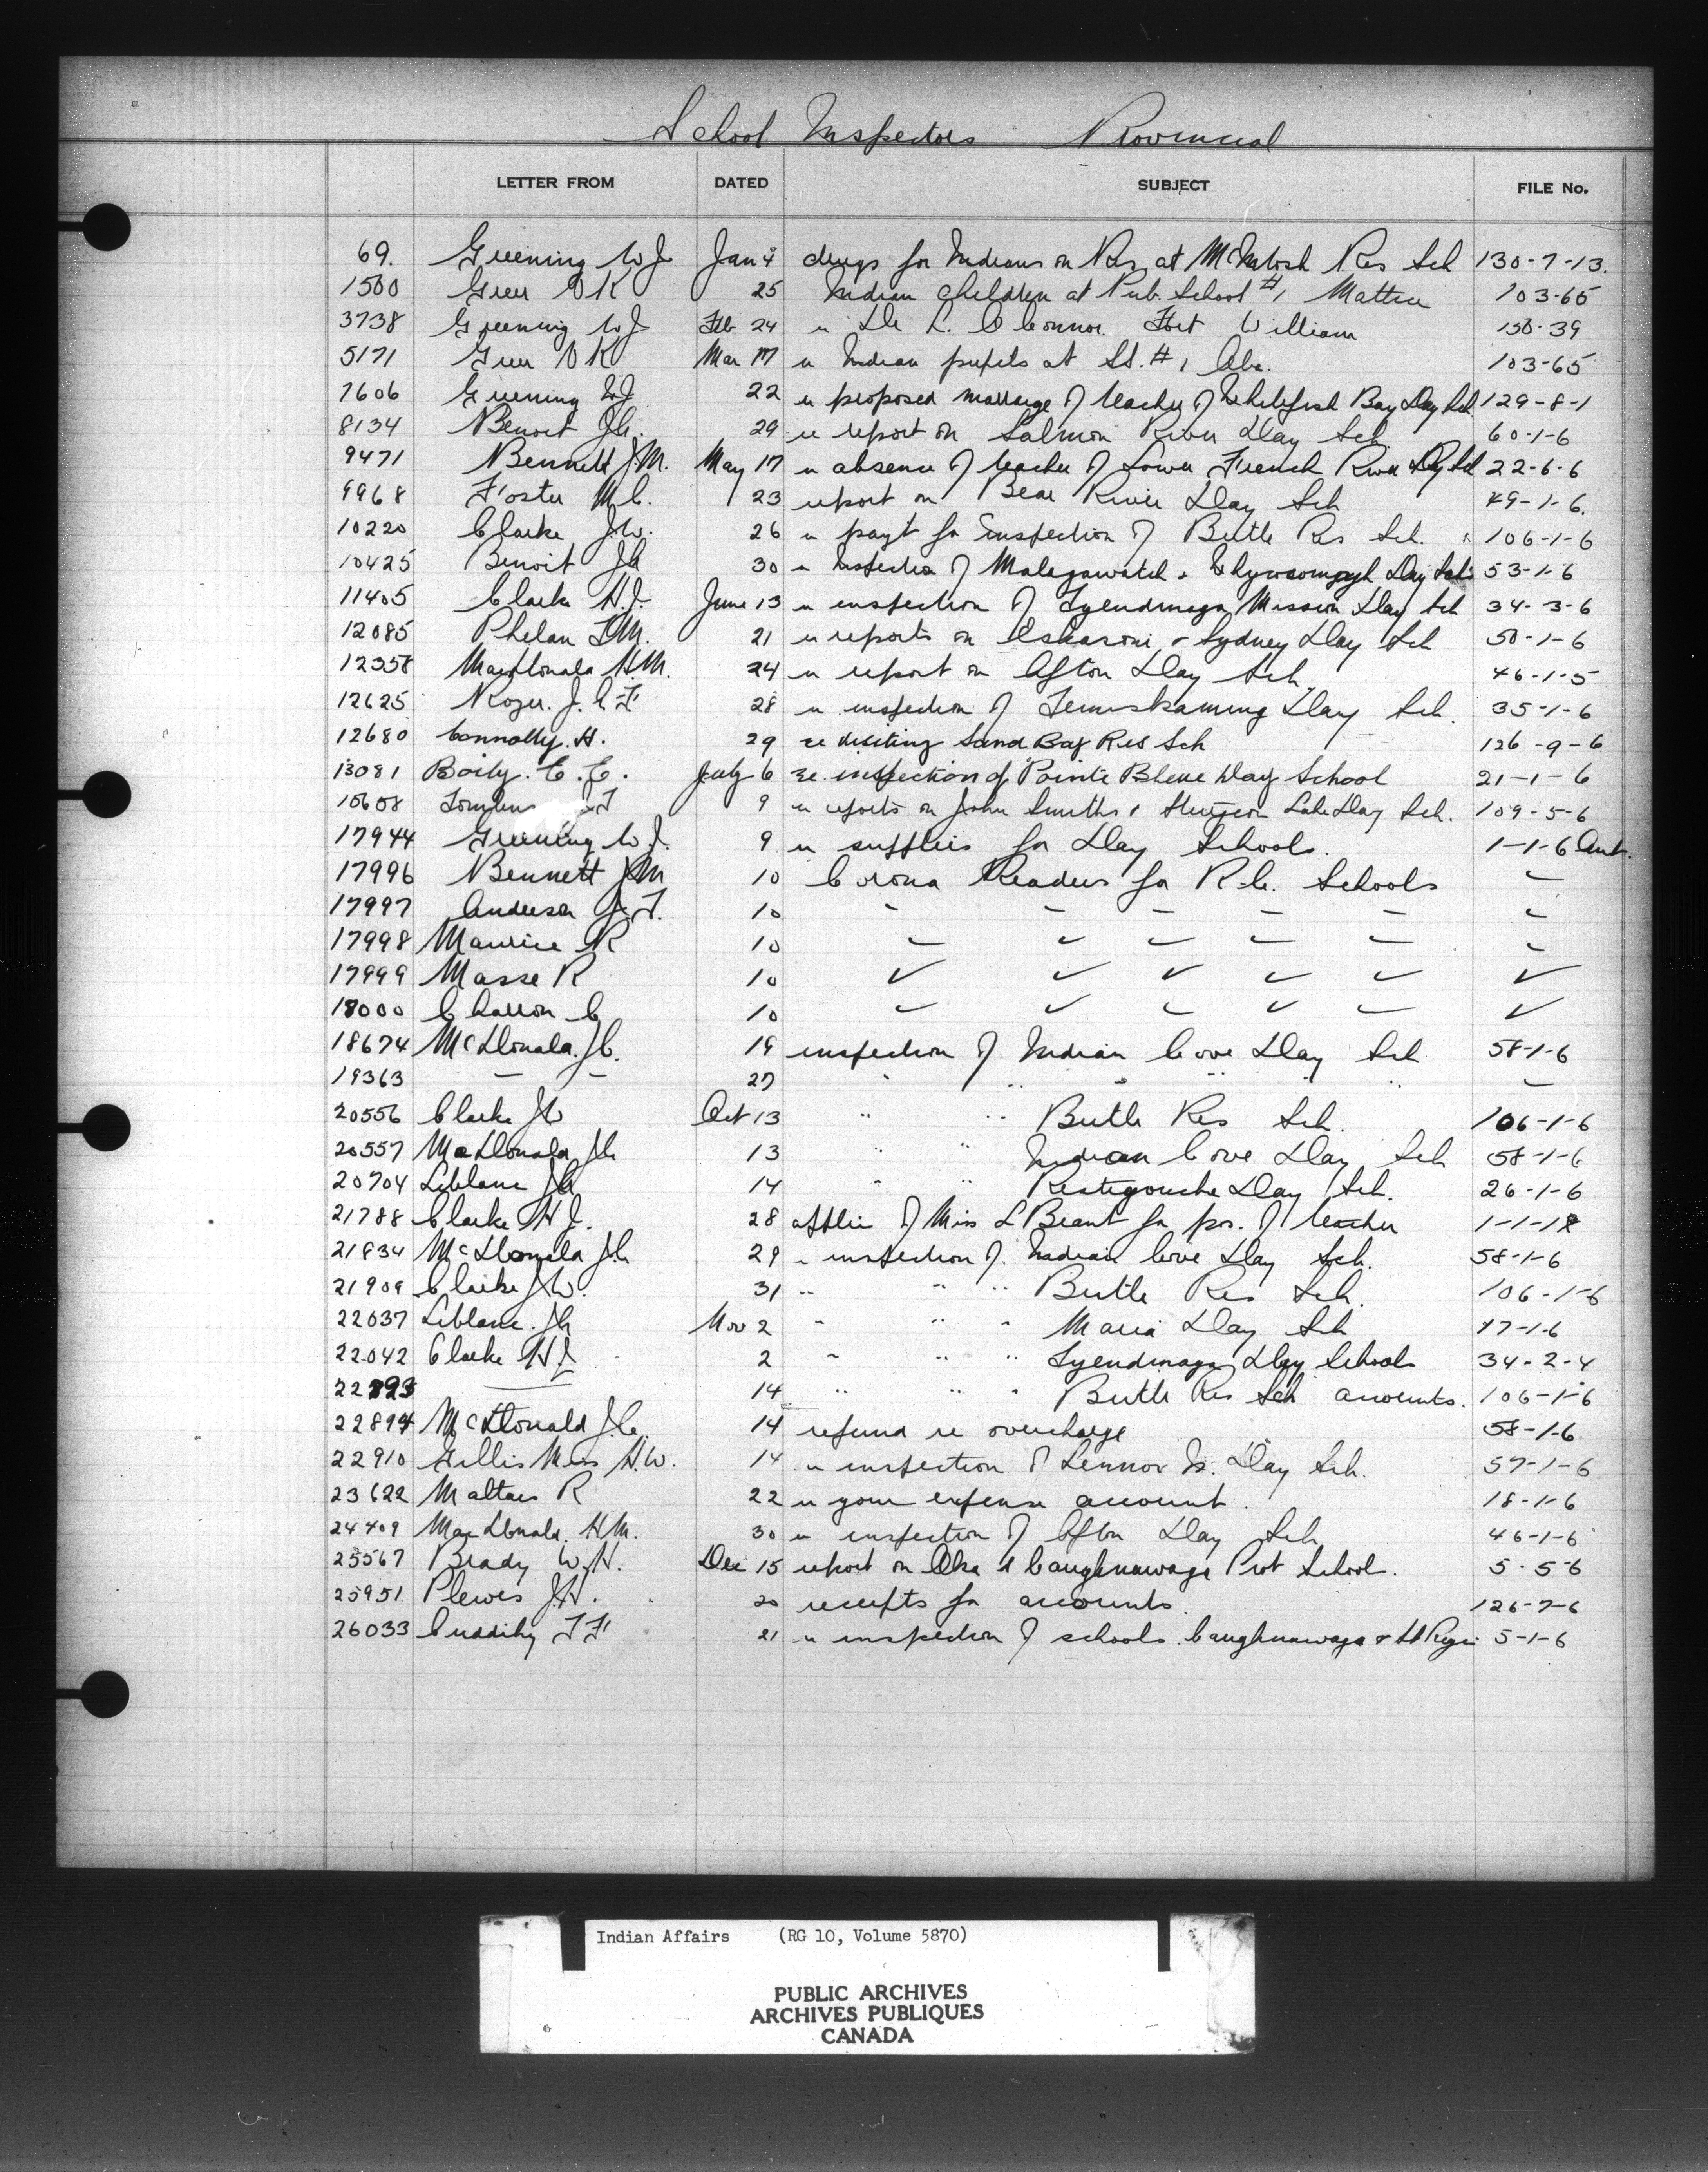 School Inspectors Provincial
LETTER FROM DATED SUBJECT FILE No.
69. Greening W J Jan 4 drugs for Indians on Res at McIntosh Res Sch 130-7-13.
1500 Greer V K 25 Indian children at Pub. School #1 103-65
3738 Greening W J Feb 24 re Dr L. O Connor. Fort William 130-39
5171 Greer V K Mar 17 re Indian pupils at #1 103-65
7606 Greening W J 22 re proposed marriage of teacher of Whitefish Bay Day Sch. 129-8-1
8134 Benoit J A. 29 re report on Salmon River Day Sch. 60-1-6
9471 Bennett J.M. May 17 re absence of teacher of Lower French River Day Sch 22-6-6
9968 Foster M C. 23 report on Bear River Day Sch 49-1-6.
10220 Clarke J.W. 26 re payt for inspection of Birtle Res Sch. 106-1-6
10425 Benoit J A 30 re Inspection of Malagawatch & Whycocomagh Day Sch's 53-1-6
11405 Clarke H.J. June 13 re inspection of Tyendinaga Mission Day Sch 34-3-6
12085 Phelan T.M. 21 re reports on Eskasoni & Sydney Day Sch 50-1-6
12358 MacDonald H.M. 24 re report on Afton Day Sch. 46-1-5
12625 28 re inspection of Temiskaming Day Sch. 35-1-6
12680 Connolly. H. 29 re visiting Sand Bay Res Sch 126-9-6
13081 Boily. C. E. July 6 re. inspection of Pointe Bleue Day School 21-1-6
15608 9 re reports on John Smiths & Sturgeon Lake Day Sch. 109-5-6
17944 Greening W J. 9 re supplies for Day Schools. 1-1-6 Ont.
17996 Bennett J M 10 Corona Readers for R.C. Schools -
17997 Anderson J. T. 10 - - - - - -
17998 Maurice R 10 - - - - - -
17999 Masse R 10 - - - - - -
18000 Charron C 10 - - - - - -
18674 McDonald. J C. 19 inspection of Indian Cove Day Sch 58-1-6
19363 - - 27 " " " " " " -
20556 Clarke J W Oct 13 " " Birtle Res Sch. 106-1-6
20557 MacDonald J C 13 " " Indian Cove Day Sch 58-1-6
20704 Leblanc J A 14 " " Restigouche Day Sch. 26-1-6
21788 Clarke H J. 28 applic of Miss L Brant for pos. of teacher 1-1-18
21834 McDonald J C 29 " inspection of Indian Cove Day Sch. 58-1-6
21909 Clarke J W. 31 " " " Birtle Res Sch. 106-1-6
22037 Leblanc. J A Nov 2 " " " Maria Day Sch 17-1-6
22042 Clarke H J 2 " " " Tyendinaga Day Schools 34-2-4
22893 — 14 " " " Birtle Res Sch accounts. 106-1-6
22894 McDonald J.C. 14 refund re overcharge 58-1-6
22910 Gillis Miss H.W. 14 re inspection of Lennox Is. Day Sch. 57-1-6
23622 Maltais R 22 re your expense account. 18-1-6
24409 MacDonald. H M. 30 re inspection of Afton Day Sch. 46-1-6
25567 Brady W.H. Dec 15 report on Oka & Caughnawaga Prot School. 5-5-6
25951 Plewes J H. 20 receipts for accounts. 126-7-6
26033 Cuddihy T F 21 re inspection of schools. Caughnawaga & St Regis 5-1-6
Indian Affairs (RG 10, Volume 5870)
PUBLIC ARCHIVES
ARCHIVES PUBLIQUES
CANADA